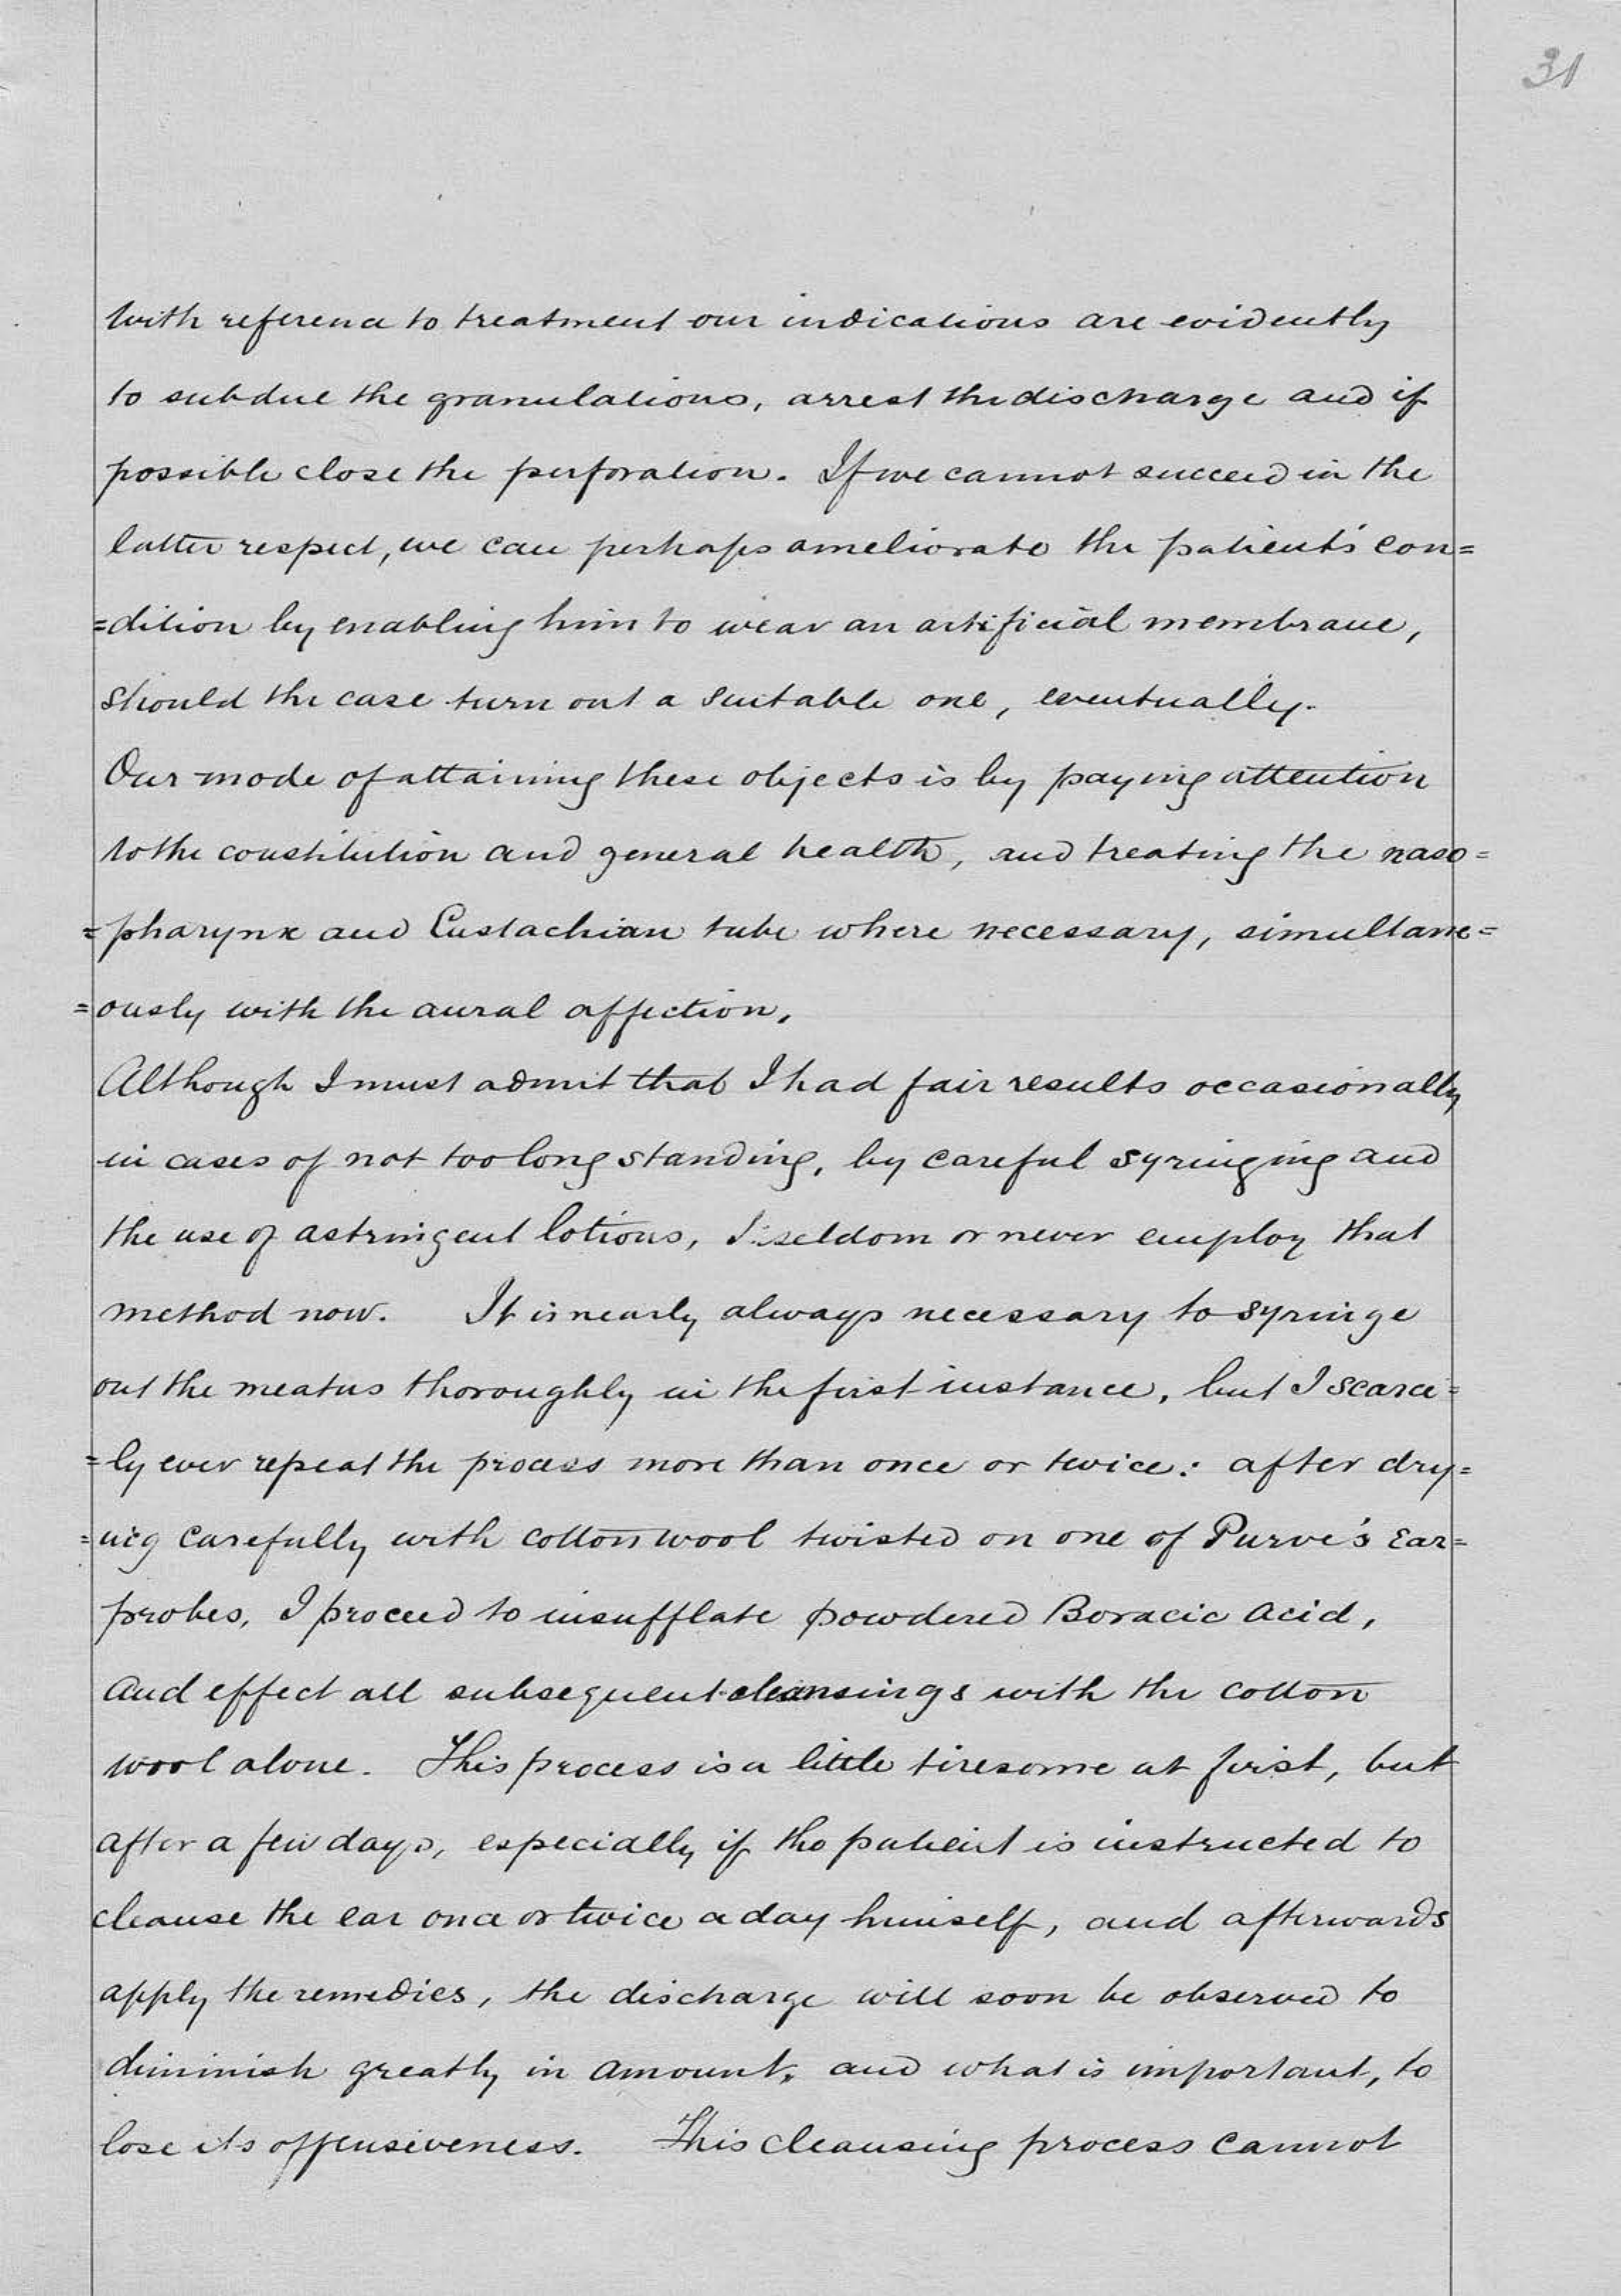 31
With reference to treatment our indications are evidently
to subdue the granulations, arrest the discharge and if
possible close the perforation. If we cannot succeed in the
latter respect, we can perhaps ameliorate the patient's con=
=dition by enabling him to wear an artificial membrane,
should the case turn out a suitable one, eventually.
Our mode of attaining these objects is by paying attention
to the constitution and general health, and treating the naso=
=pharynx and Eustachian tube where necessary, simultane=
=ously with the aural affection.
Although I must admit that I had fair results occasionally
in cases of not too long standing, by careful syringing and
the use of astringent lotions, I seldom or never employ that
method now. It is nearly always necessary to syringe
out the meatus thoroughly in the first instance, but I scarce=
=ly ever repeat the process more than once or twice: after dry=
=ing carefully with cotton wool twisted on one of Purve's Ear=
probes, I proceed to insufflate powdered Boracic Acid,
and effect all subsequent cleansings with the cotton
wool alone. This process is a little tiresome at first, but
after a few days, especially if the patient is instructed to
cleanse the ear once or twice a day himself, and afterwards
apply the remedies, the discharge will soon be observed to
diminish greatly in amount, and what is important, to
lose its offensiveness. This cleansing process cannot